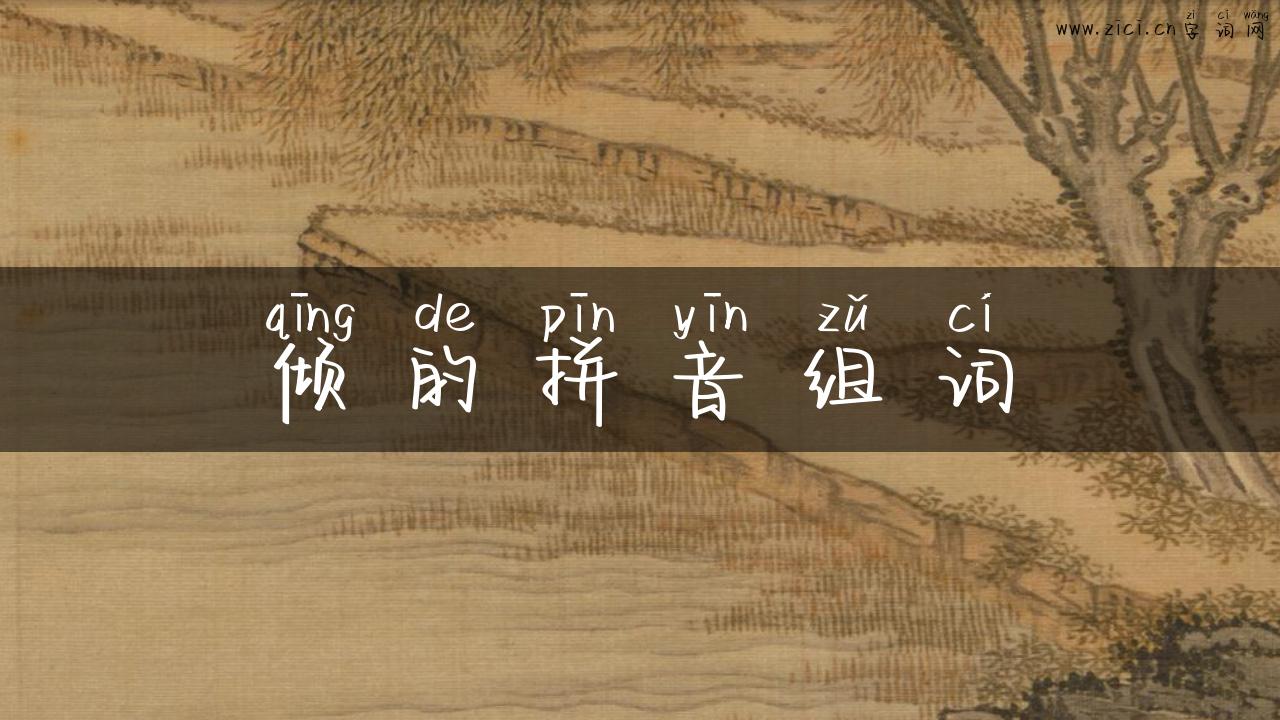 zì cí wǎng
www.zici.cn字词网
qīng de pīn yīn zǔ cí
倾的拼音组词